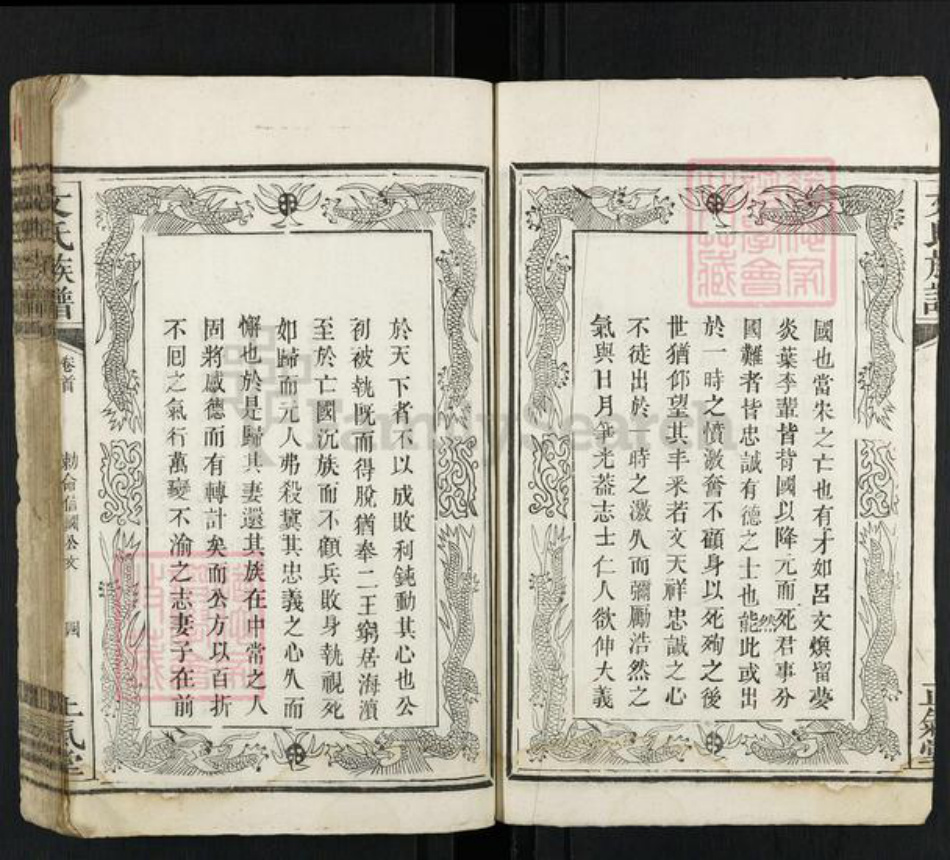 國也當朱之亡也有才如呂文煥留夢
炎葉李輩皆背國以降元而死君事分
國難者皆忠誠有德之士也能然此或出
於一時之憤激奮不顧身以死殉之後
世猶仰望其丰采若文天祥忠誠之心
不徒出於一時之激久而彌勵浩然之
氣與日月爭光蓋志士仁人欲伸大義
於天下者不以成敗利鈍動其心也公
初被執既而得脫猶奉二王窮居海濵
至於亡國沉族而不顧兵敗身執視死
如歸而元人弗殺冀其忠義之心久而
懈也於是歸其妻還其族在中常之人
固將感德而有轉計矣而公方以百折
不囘之氣行萬變不渝之志妻子在前
文氏族譜
卷首
勅命信國公文
四
正氣堂
文氏族譜
正氣堂
FamilySearch